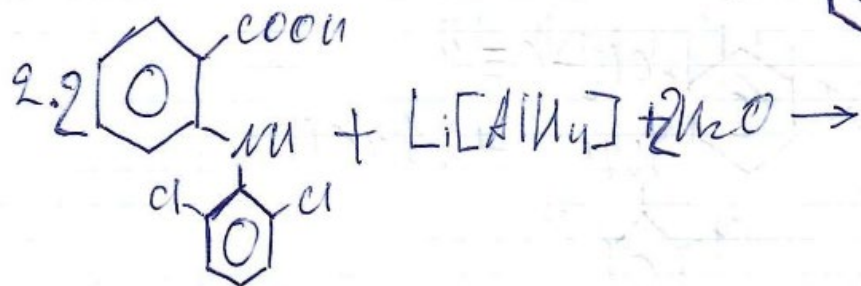 COOH
2.2 NH + Li[AlH4] + 2H2O →
Cl Cl